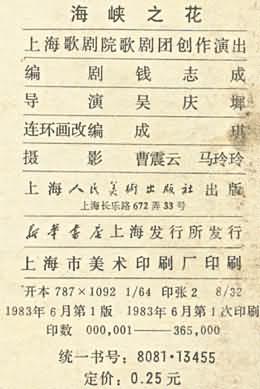 海峡之花
上海歌剧院歌剧团创作演出
编 剧 钱志成
导 演 吴庆墀
连环画改编 成 琪
摄 影 曹震云 马玲玲
上海人民美術出版社出版
上海长乐路 672 弄 33 号
新华書店上海发行所发行
上海市美术印刷厂印刷
开本 787×1092 1/64 印张 2 8/32
1983年6月第1版 1983年6月第1次印刷
印数 000,001——365,000
统一书号：8081·13455
定价：0.25 元